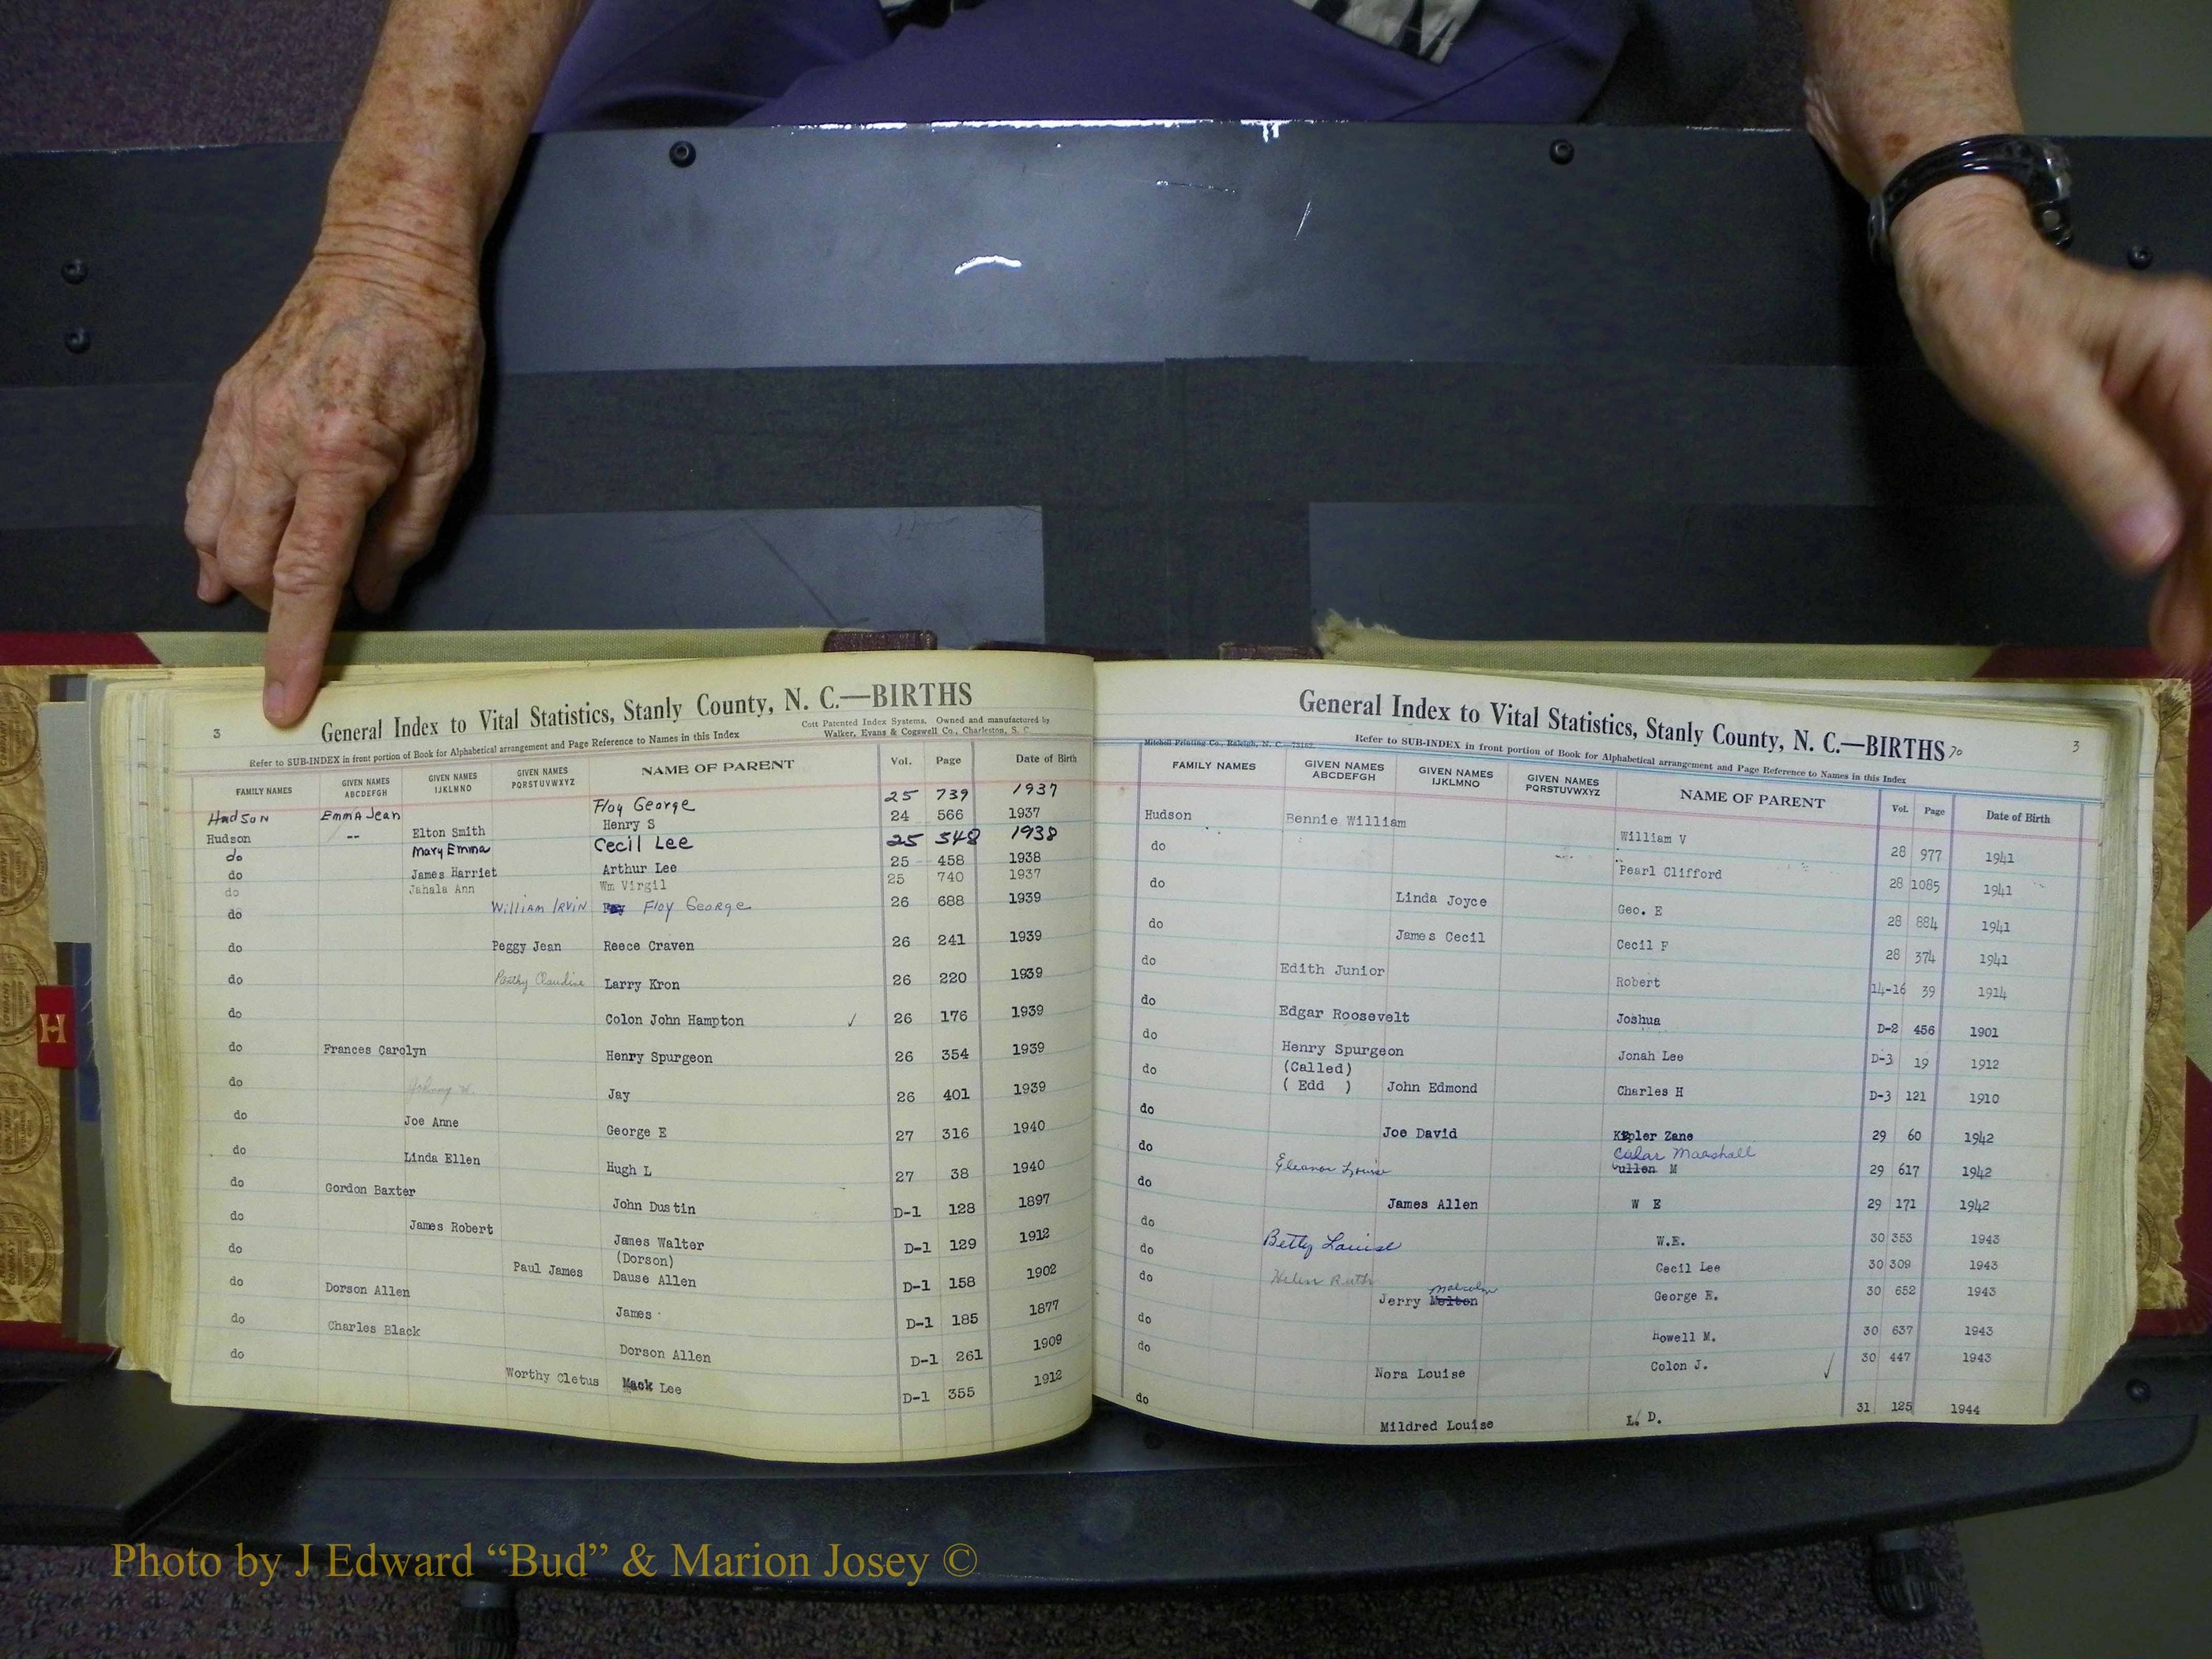 3
General Index to Vital Statistics, Stanly County, N. C.—BIRTHS
Refer to SUB-INDEX in front portion of Book for Alphabetical arrangement and Page Reference to Names in this Index
Cott Patented Index Systems. Owned and manufactured by
Walker, Evans & Cogswell Co., Charleston, S. C.
FAMILY NAMES GIVEN NAMES ABCDEFGH GIVEN NAMES IJKLMNO GIVEN NAMES PQRSTUVWXYZ NAME OF PARENT Vol. Page Date of Birth
Hudson Emma Jean Floy George 25 739 1937
Hudson -- Elton Smith Henry S 24 566 1937
do Mary Emma Cecil Lee 25 548 1938
do James Harriet Arthur Lee 25 458 1938
do Jahala Ann Wm Virgil 25 740 1937
do William Irvin Floy George 26 688 1939
do Peggy Jean Reece Craven 26 241 1939
do Claudine Larry Kron 26 220 1939
do Colon John Hampton ✓ 26 176 1939
do Frances Carolyn Henry Spurgeon 26 354 1939
do Jay 26 401 1939
do Joe Anne George E 27 316 1940
do Linda Ellen Hugh L 27 38 1940
do Gordon Baxter John Dustin D-1 128 1897
do James Robert James Walter D-1 129 1912
(Dorson)
do Paul James Dause Allen D-1 158 1902
do Dorson Allen James D-1 185 1877
do Charles Black Dorson Allen D-1 261 1909
do Worthy Cletus Mack Lee D-1 355 1912
H
General Index to Vital Statistics, Stanly County, N. C.—BIRTHS 70
3
Mitchell Printing Co., Raleigh, N. C.
Refer to SUB-INDEX in front portion of Book for Alphabetical arrangement and Page Reference to Names in this Index
FAMILY NAMES GIVEN NAMES ABCDEFGH GIVEN NAMES IJKLMNO GIVEN NAMES PQRSTUVWXYZ NAME OF PARENT Vol. Page Date of Birth
Hudson Bennie William William V 28 977 1941
do Pearl Clifford 28 1085 1941
do Linda Joyce Geo. E 28 884 1941
do James Cecil Cecil F 28 374 1941
do Edith Junior Robert 14-16 39 1914
do Edgar Roosevelt Joshua D-2 456 1901
do Henry Spurgeon Jonah Lee D-3 19 1912
(Called)
do ( Edd ) John Edmond Charles H D-3 121 1910
do Joe David Kepler Zane 29 60 1942
Marshall
do Eleanor Louise Cullen M 29 617 1942
do James Allen W E 29 171 1942
do Betty Louise W.E. 30 353 1943
do Helen Ruth Cecil Lee 30 309 1943
Malcolm
do Jerry Melton George E. 30 652 1943
do Howell M. 30 637 1943
do Nora Louise Colon J. ✓ 30 447 1943
do Mildred Louise L. D. 31 125 1944
Photo by J Edward “Bud” & Marion Josey ©